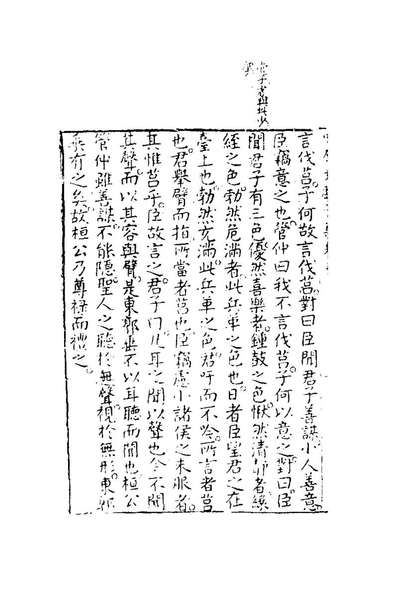 言伐莒子何故言伐莒對曰臣聞君子善謀小人善意
臣竊意之也管仲曰我不言伐莒子何以意之對曰臣
聞君子有三色優然喜樂者鍾鼓之色愀然清淨者縗
絰之色勃然充滿者此兵革之色也日者臣望君之在
臺上也勃然充滿此兵革之色君吁而不吟所言者莒
也君舉臂而指所當者莒也臣竊慮小諸侯之未服者
其惟莒乎臣故言之君子曰凡耳之聞以聲也今不聞
其聲而以其容與臂是東郭垂不以耳聽而聞也桓公
管仲雖善謀不能隱聖人之聽於無聲視於無形東郭
垂有之矣故桓公乃尊祿而禮之